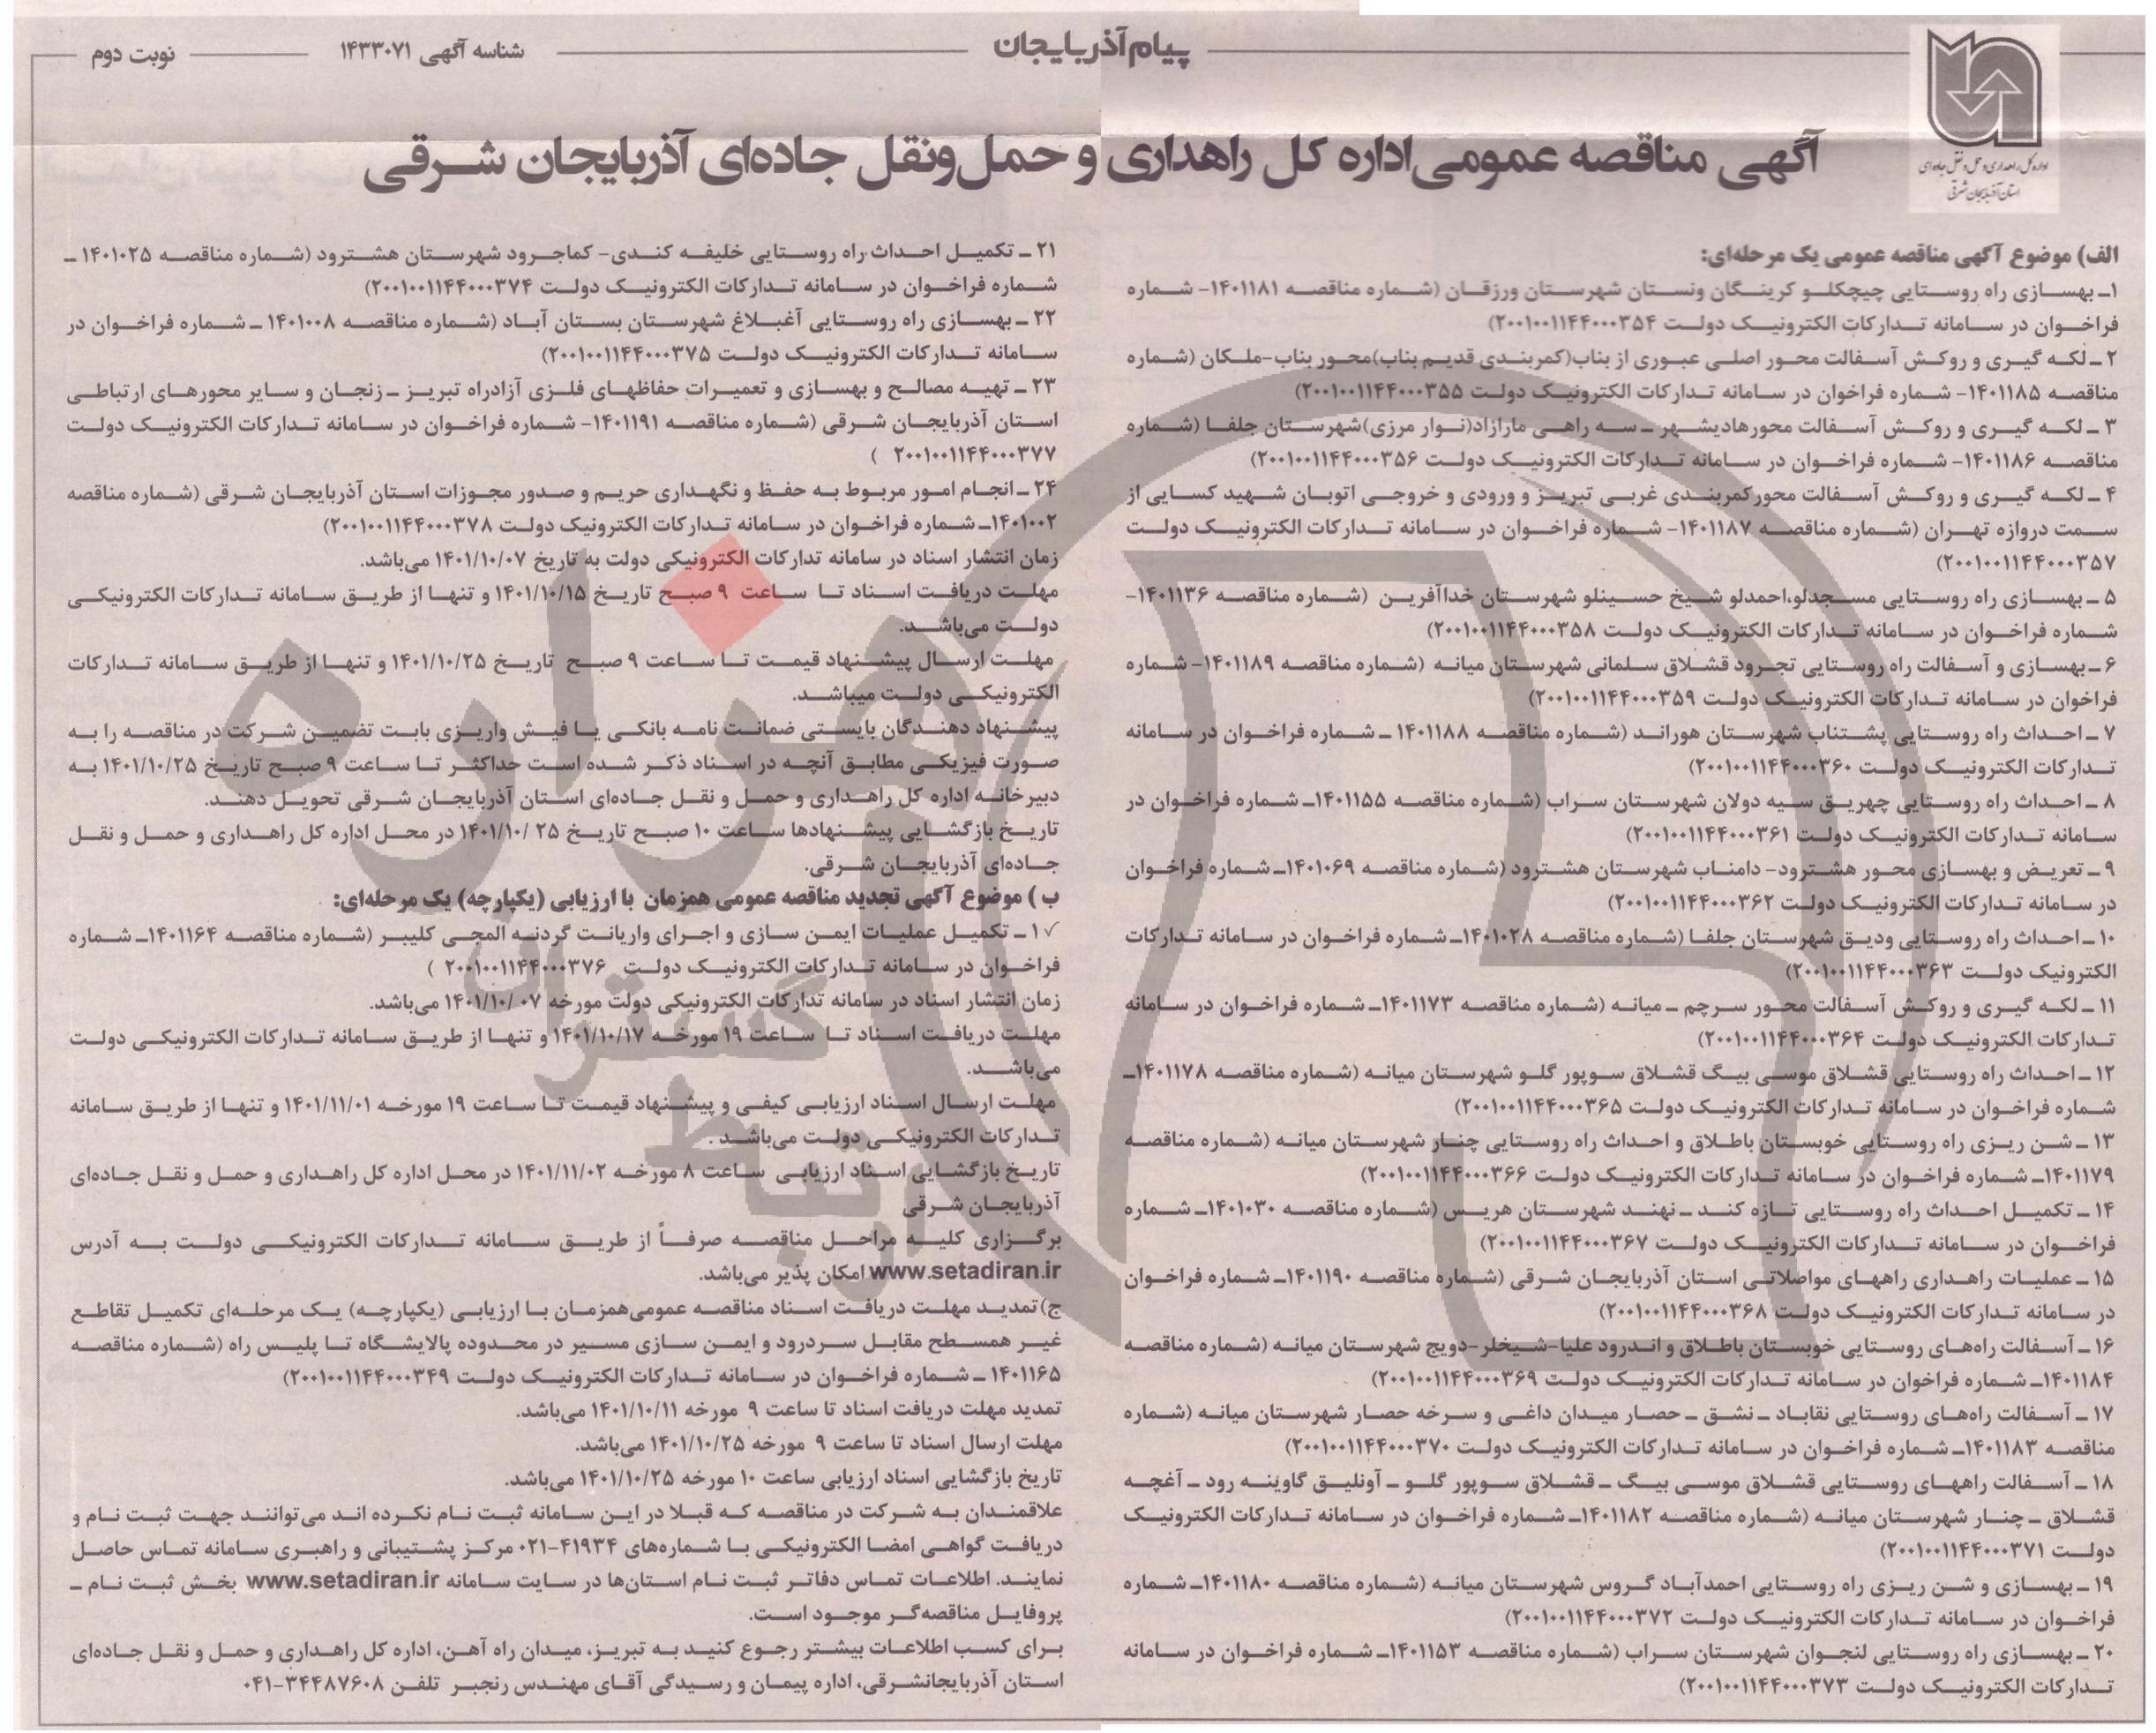 پیام آذربایجان
شناسه آگهی ۱۴۳۳۰۷۱
نوبت دوم
اداره کل راهداری و حمل و نقل جاده‌ای
استان آذربایجان شرقی
آگهی مناقصه عمومی اداره کل راهداری و حمل‌ونقل جاده‌ای آذربایجان شرقی
الف) موضوع آگهی مناقصه عمومی یک مرحله‌ای:
۱ـ بهسازی راه روستایی چیچکلو کرینگان ونستان شهرستان ورزقان (شماره مناقصه ۱۴۰۱۱۸۱- شماره
فراخوان در سامانه تدارکات الکترونیک دولت ۲۰۰۱۰۰۱۱۴۴۰۰۰۳۵۴)
۲ ـ لکه گیری و روکش آسفالت محور اصلی عبوری از بناب(کمربندی قدیم بناب)محور بناب-ملکان (شماره
مناقصه ۱۴۰۱۱۸۵- شماره فراخوان در سامانه تدارکات الکترونیک دولت ۲۰۰۱۰۰۱۱۴۴۰۰۰۳۵۵)
۳ ـ لکه گیری و روکش آسفالت محورهادیشهر ـ سه راهی مارازاد(نوار مرزی)شهرستان جلفا (شماره
مناقصه ۱۴۰۱۱۸۶- شماره فراخوان در سامانه تدارکات الکترونیک دولت ۲۰۰۱۰۰۱۱۴۴۰۰۰۳۵۶)
۴ ـ لکه گیری و روکش آسفالت محورکمربندی غربی تبریز و ورودی و خروجی اتوبان شهید کسایی از
سمت دروازه تهران (شماره مناقصه ۱۴۰۱۱۸۷- شماره فراخوان در سامانه تدارکات الکترونیک دولت
۲۰۰۱۰۰۱۱۴۴۰۰۰۳۵۷)
۵ ـ بهسازی راه روستایی مسجدلو،احمدلو شیخ حسینلو شهرستان خداآفرین (شماره مناقصه ۱۴۰۱۱۳۶-
شماره فراخوان در سامانه تدارکات الکترونیک دولت ۲۰۰۱۰۰۱۱۴۴۰۰۰۳۵۸)
۶ ـ بهسازی و آسفالت راه روستایی تجرود قشلاق سلمانی شهرستان میانه (شماره مناقصه ۱۴۰۱۱۸۹- شماره
فراخوان در سامانه تدارکات الکترونیک دولت ۲۰۰۱۰۰۱۱۴۴۰۰۰۳۵۹)
۷ ـ احداث راه روستایی پشتناب شهرستان هوراند (شماره مناقصه ۱۴۰۱۱۸۸ ـ شماره فراخوان در سامانه
تدارکات الکترونیک دولت ۲۰۰۱۰۰۱۱۴۴۰۰۰۳۶۰)
۸ ـ احداث راه روستایی چهریق سیه دولان شهرستان سراب (شماره مناقصه ۱۴۰۱۱۵۵ـ شماره فراخوان در
سامانه تدارکات الکترونیک دولت ۲۰۰۱۰۰۱۱۴۴۰۰۰۳۶۱)
۹ ـ تعریض و بهسازی محور هشترود- دامناب شهرستان هشترود (شماره مناقصه ۱۴۰۱۰۶۹ـ شماره فراخوان
در سامانه تدارکات الکترونیک دولت ۲۰۰۱۰۰۱۱۴۴۰۰۰۳۶۲)
۱۰ ـ احداث راه روستایی ودیق شهرستان جلفا (شماره مناقصه ۱۴۰۱۰۲۸ـ شماره فراخوان در سامانه تدارکات
الکترونیک دولت ۲۰۰۱۰۰۱۱۴۴۰۰۰۳۶۳)
۱۱ ـ لکه گیری و روکش آسفالت محور سرچم ـ میانه (شماره مناقصه ۱۴۰۱۱۷۳ـ شماره فراخوان در سامانه
تدارکات الکترونیک دولت ۲۰۰۱۰۰۱۱۴۴۰۰۰۳۶۴)
۱۲ ـ احداث راه روستایی قشلاق موسی بیگ قشلاق سوپور گلو شهرستان میانه (شماره مناقصه ۱۴۰۱۱۷۸ـ
شماره فراخوان در سامانه تدارکات الکترونیک دولت ۲۰۰۱۰۰۱۱۴۴۰۰۰۳۶۵)
۱۳ ـ شن ریزی راه روستایی خوبستان باطلاق و احداث راه روستایی چنار شهرستان میانه (شماره مناقصه
۱۴۰۱۱۷۹ـ شماره فراخوان در سامانه تدارکات الکترونیک دولت ۲۰۰۱۰۰۱۱۴۴۰۰۰۳۶۶)
۱۴ ـ تکمیل احداث راه روستایی تازه کند ـ نهند شهرستان هریس (شماره مناقصه ۱۴۰۱۰۳۰ـ شماره
فراخوان در سامانه تدارکات الکترونیک دولت ۲۰۰۱۰۰۱۱۴۴۰۰۰۳۶۷)
۱۵ ـ عملیات راهداری راههای مواصلاتی استان آذربایجان شرقی (شماره مناقصه ۱۴۰۱۱۹۰ـ شماره فراخوان
در سامانه تدارکات الکترونیک دولت ۲۰۰۱۰۰۱۱۴۴۰۰۰۳۶۸)
۱۶ ـ آسفالت راه‌های روستایی خوبستان باطلاق و اندرود علیا-شیخلر-دویج شهرستان میانه (شماره مناقصه
۱۴۰۱۱۸۴ـ شماره فراخوان در سامانه تدارکات الکترونیک دولت ۲۰۰۱۰۰۱۱۴۴۰۰۰۳۶۹)
۱۷ ـ آسفالت راه‌های روستایی نقاباد ـ نشق ـ حصار میدان داغی و سرخه حصار شهرستان میانه (شماره
مناقصه ۱۴۰۱۱۸۳ـ شماره فراخوان در سامانه تدارکات الکترونیک دولت ۲۰۰۱۰۰۱۱۴۴۰۰۰۳۷۰)
۱۸ ـ آسفالت راههای روستایی قشلاق موسی بیگ ـ قشلاق سوپور گلو ـ آونلیق گاوینه رود ـ آغچه
قشلاق ـ چنار شهرستان میانه (شماره مناقصه ۱۴۰۱۱۸۲ـ شماره فراخوان در سامانه تدارکات الکترونیک
دولت ۲۰۰۱۰۰۱۱۴۴۰۰۰۳۷۱)
۱۹ ـ بهسازی و شن ریزی راه روستایی احمدآباد گروس شهرستان میانه (شماره مناقصه ۱۴۰۱۱۸۰ـ شماره
فراخوان در سامانه تدارکات الکترونیک دولت ۲۰۰۱۰۰۱۱۴۴۰۰۰۳۷۲)
۲۰ ـ بهسازی راه روستایی لنجوان شهرستان سراب (شماره مناقصه ۱۴۰۱۱۵۳ـ شماره فراخوان در سامانه
تدارکات الکترونیک دولت ۲۰۰۱۰۰۱۱۴۴۰۰۰۳۷۳)
۲۱ ـ تکمیل احداث راه روستایی خلیفه کندی- کماجرود شهرستان هشترود (شماره مناقصه ۱۴۰۱۰۲۵ ـ
شماره فراخوان در سامانه تدارکات الکترونیک دولت ۲۰۰۱۰۰۱۱۴۴۰۰۰۳۷۴)
۲۲ ـ بهسازی راه روستایی آغبلاغ شهرستان بستان آباد (شماره مناقصه ۱۴۰۱۰۰۸ ـ شماره فراخوان در
سامانه تدارکات الکترونیک دولت ۲۰۰۱۰۰۱۱۴۴۰۰۰۳۷۵)
۲۳ ـ تهیه مصالح و بهسازی و تعمیرات حفاظهای فلزی آزادراه تبریز ـ زنجان و سایر محورهای ارتباطی
استان آذربایجان شرقی (شماره مناقصه ۱۴۰۱۱۹۱- شماره فراخوان در سامانه تدارکات الکترونیک دولت
۲۰۰۱۰۰۱۱۴۴۰۰۰۳۷۷ )
۲۴ ـ انجام امور مربوط به حفظ و نگهداری حریم و صدور مجوزات استان آذربایجان شرقی (شماره مناقصه
۱۴۰۱۰۰۲ـ شماره فراخوان در سامانه تدارکات الکترونیک دولت ۲۰۰۱۰۰۱۱۴۴۰۰۰۳۷۸)
زمان انتشار اسناد در سامانه تدارکات الکترونیکی دولت به تاریخ ۱۴۰۱/۱۰/۰۷ می‌باشد.
مهلت دریافت اسناد تا ساعت ۹ صبح تاریخ ۱۴۰۱/۱۰/۱۵ و تنها از طریق سامانه تدارکات الکترونیکی
دولت می‌باشد.
مهلت ارسال پیشنهاد قیمت تا ساعت ۹ صبح تاریخ ۱۴۰۱/۱۰/۲۵ و تنها از طریق سامانه تدارکات
الکترونیکی دولت میباشد.
پیشنهاد دهندگان بایستی ضمانت نامه بانکی یا فیش واریزی بابت تضمین شرکت در مناقصه را به
صورت فیزیکی مطابق آنچه در اسناد ذکر شده است حداکثر تا ساعت ۹ صبح تاریخ ۱۴۰۱/۱۰/۲۵ به
دبیرخانه اداره کل راهداری و حمل و نقل جاده‌ای استان آذربایجان شرقی تحویل دهند.
تاریخ بازگشایی پیشنهادها ساعت ۱۰ صبح تاریخ ۲۵ /۱۴۰۱/۱۰ در محل اداره کل راهداری و حمل و نقل
جاده‌ای آذربایجان شرقی.
ب ) موضوع آگهی تجدید مناقصه عمومی همزمان با ارزیابی (یکپارچه) یک مرحله‌ای:
✓۱ ـ تکمیل عملیات ایمن سازی و اجرای واریانت گردنه المجی کلیبر (شماره مناقصه ۱۴۰۱۱۶۴ـ شماره
فراخوان در سامانه تدارکات الکترونیک دولت ۲۰۰۱۰۰۱۱۴۴۰۰۰۳۷۶ )
زمان انتشار اسناد در سامانه تدارکات الکترونیکی دولت مورخه ۰۷ /۱۴۰۱/۱۰ می‌باشد.
مهلت دریافت اسناد تا ساعت ۱۹ مورخه ۱۴۰۱/۱۰/۱۷ و تنها از طریق سامانه تدارکات الکترونیکی دولت
می‌باشد.
مهلت ارسال اسناد ارزیابی کیفی و پیشنهاد قیمت تا ساعت ۱۹ مورخه ۱۴۰۱/۱۱/۰۱ و تنها از طریق سامانه
تدارکات الکترونیکی دولت می‌باشد .
تاریخ بازگشایی اسناد ارزیابی ساعت ۸ مورخه ۱۴۰۱/۱۱/۰۲ در محل اداره کل راهداری و حمل و نقل جاده‌ای
آذربایجان شرقی
برگزاری کلیه مراحل مناقصه صرفاً از طریق سامانه تدارکات الکترونیکی دولت به آدرس
www.setadiran.ir امکان پذیر می‌باشد.
ج) تمدید مهلت دریافت اسناد مناقصه عمومی‌همزمان با ارزیابی (یکپارچه) یک مرحله‌ای تکمیل تقاطع
غیر همسطح مقابل سردرود و ایمن سازی مسیر در محدوده پالایشگاه تا پلیس راه (شماره مناقصه
۱۴۰۱۱۶۵ ـ شماره فراخوان در سامانه تدارکات الکترونیک دولت ۲۰۰۱۰۰۱۱۴۴۰۰۰۳۴۹)
تمدید مهلت دریافت اسناد تا ساعت ۹ مورخه ۱۴۰۱/۱۰/۱۱ می‌باشد.
مهلت ارسال اسناد تا ساعت ۹ مورخه ۱۴۰۱/۱۰/۲۵ می‌باشد.
تاریخ بازگشایی اسناد ارزیابی ساعت ۱۰ مورخه ۱۴۰۱/۱۰/۲۵ می‌باشد.
علاقمندان به شرکت در مناقصه که قبلا در این سامانه ثبت نام نکرده اند می‌توانند جهت ثبت نام و
دریافت گواهی امضا الکترونیکی با شماره‌های ۴۱۹۳۴-۰۲۱ مرکز پشتیبانی و راهبری سامانه تماس حاصل
نمایند. اطلاعات تماس دفاتر ثبت نام استان‌ها در سایت سامانه www.setadiran.ir بخش ثبت نام ـ
پروفایل مناقصه‌گر موجود است.
برای کسب اطلاعات بیشتر رجوع کنید به تبریز، میدان راه آهن، اداره کل راهداری و حمل و نقل جاده‌ای
استان آذربایجانشرقی، اداره پیمان و رسیدگی آقای مهندس رنجبر تلفن ۳۴۴۸۷۶۰۸-۰۴۱